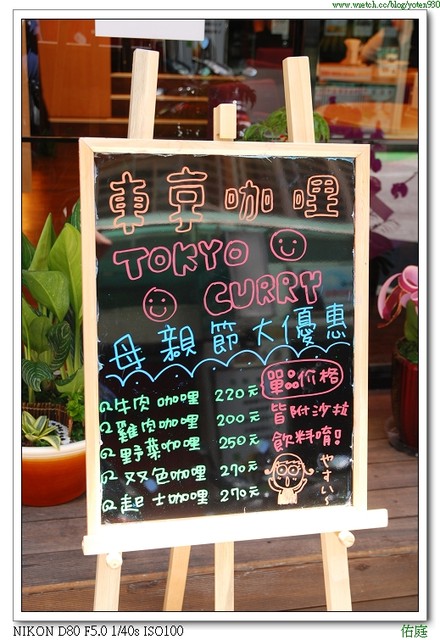 www.wretch.cc/blog/yoten930
東京咖哩
TOKYO
CURRY
母親節大優惠
牛肉咖哩 220元
雞肉咖哩 200元
野菜咖哩 250元
双色咖哩 270元
起士咖哩 270元
單品价格
皆附沙拉
飲料唷!
やすい~
NIKON D80 F5.0 1/40s ISO100
佑庭